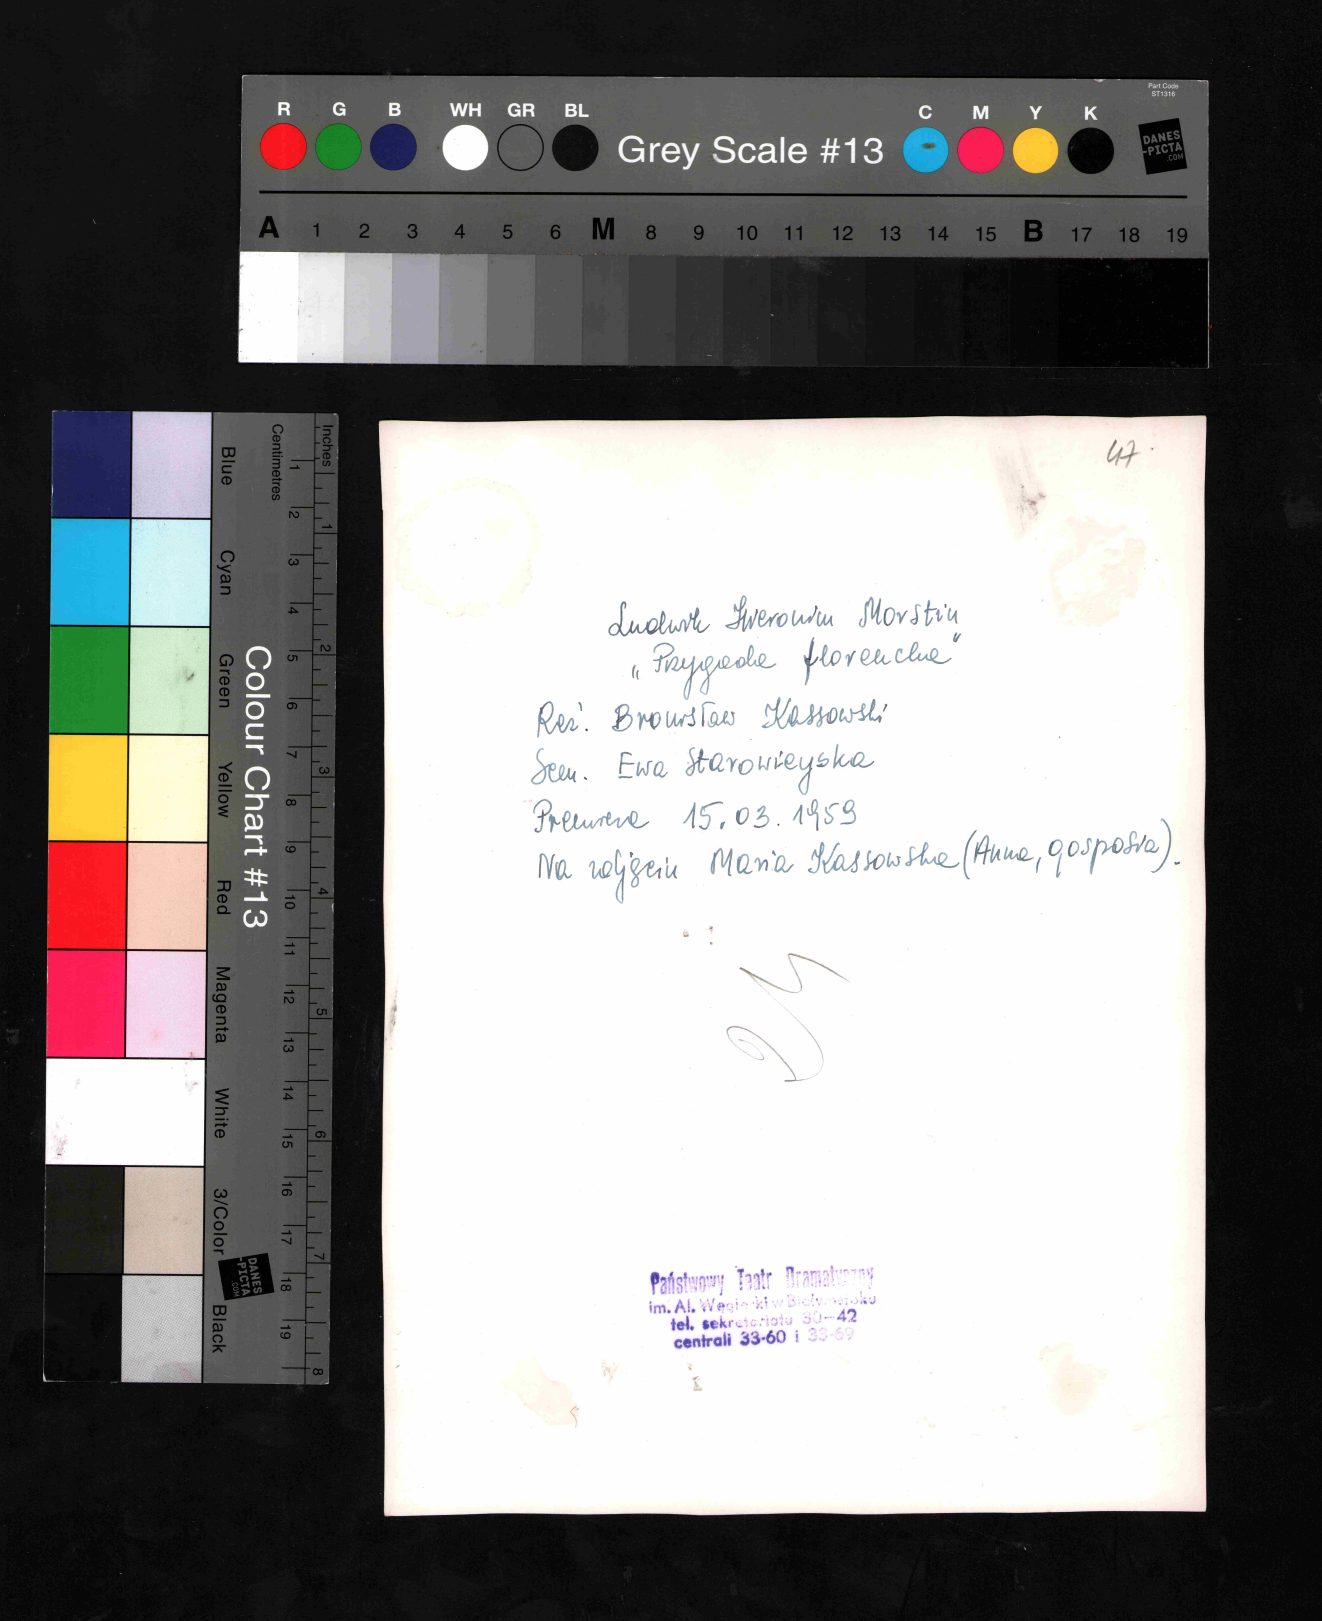 Part Code
ST1316
R G B WH GR BL Grey Scale #13 C M Y K
DANES
-PICTA
.COM
A 1 2 3 4 5 6 M 8 9 10 11 12 13 14 15 B 17 18 19
Colour Chart #13
Blue Cyan Green Yellow Red Magenta White 3/Color Black
Centimetres 1 2 3 4 5 6 7 8 9 10 11 12 13 14 15 16 17 18 19
Inches 1 2 3 4 5 6 7 8
DANES
-PICTA
.COM
47.
Ludwik Hieronim Morstin
„Przygoda florencka"
Reż. Bronisław Kassowski
Scen. Ewa Starowieyska
Premiera 15.03.1959
Na zdjęciu Maria Kassowska (Anna, gosposia).
Państwowy Teatr Dramatyczny
im. Al. Węgierki w Białymstoku
tel. sekretariatu 30-42
centrali 33-60 i 33-69